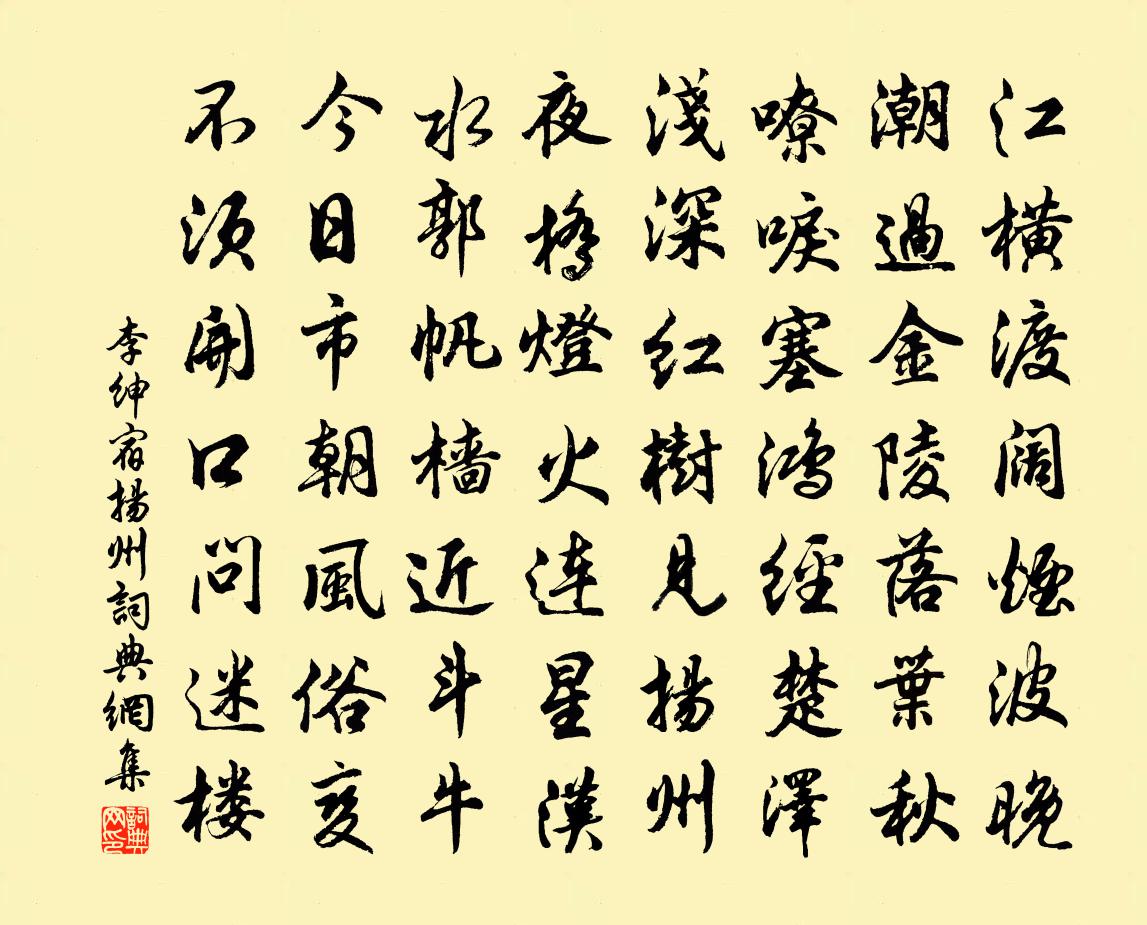 江橫渡闊煙波晚
潮過金陵落葉秋
嘹唳塞鴻經楚澤
淺深紅樹見揚州
夜橋燈火連星漢
水郭帆檣近斗牛
今日市朝風俗變
不須開口問迷樓
李紳宿揚州詞典網集
詞典網印